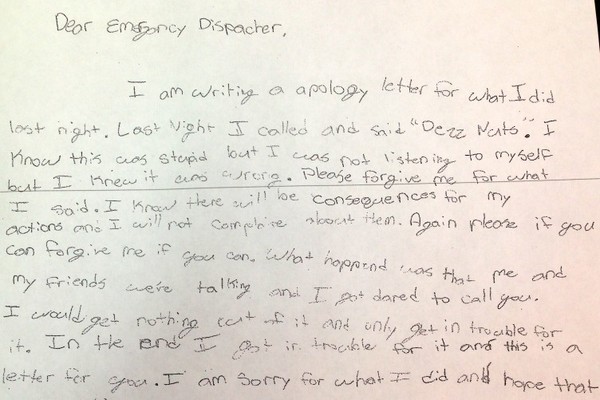 Dear Emergency Dispacher,
I am writing a apology letter for what I did
last night. Last Night I called and said "Dezz Nuts". I
Know this was stupid but I was not listening to myself
but I Knew it was wrong. Please forgive me for what
I said. I Know there will be consequences for my
actions and I will not complaine about them. Again please if you
can forgive me if you can. What happend was that me and
my friends were talking and I got dared to call you.
I would get nothing out of it and only get in trouble for
it. In the end I got in trouble for it and this is a
letter for you. I am sorry for what I did and hope that